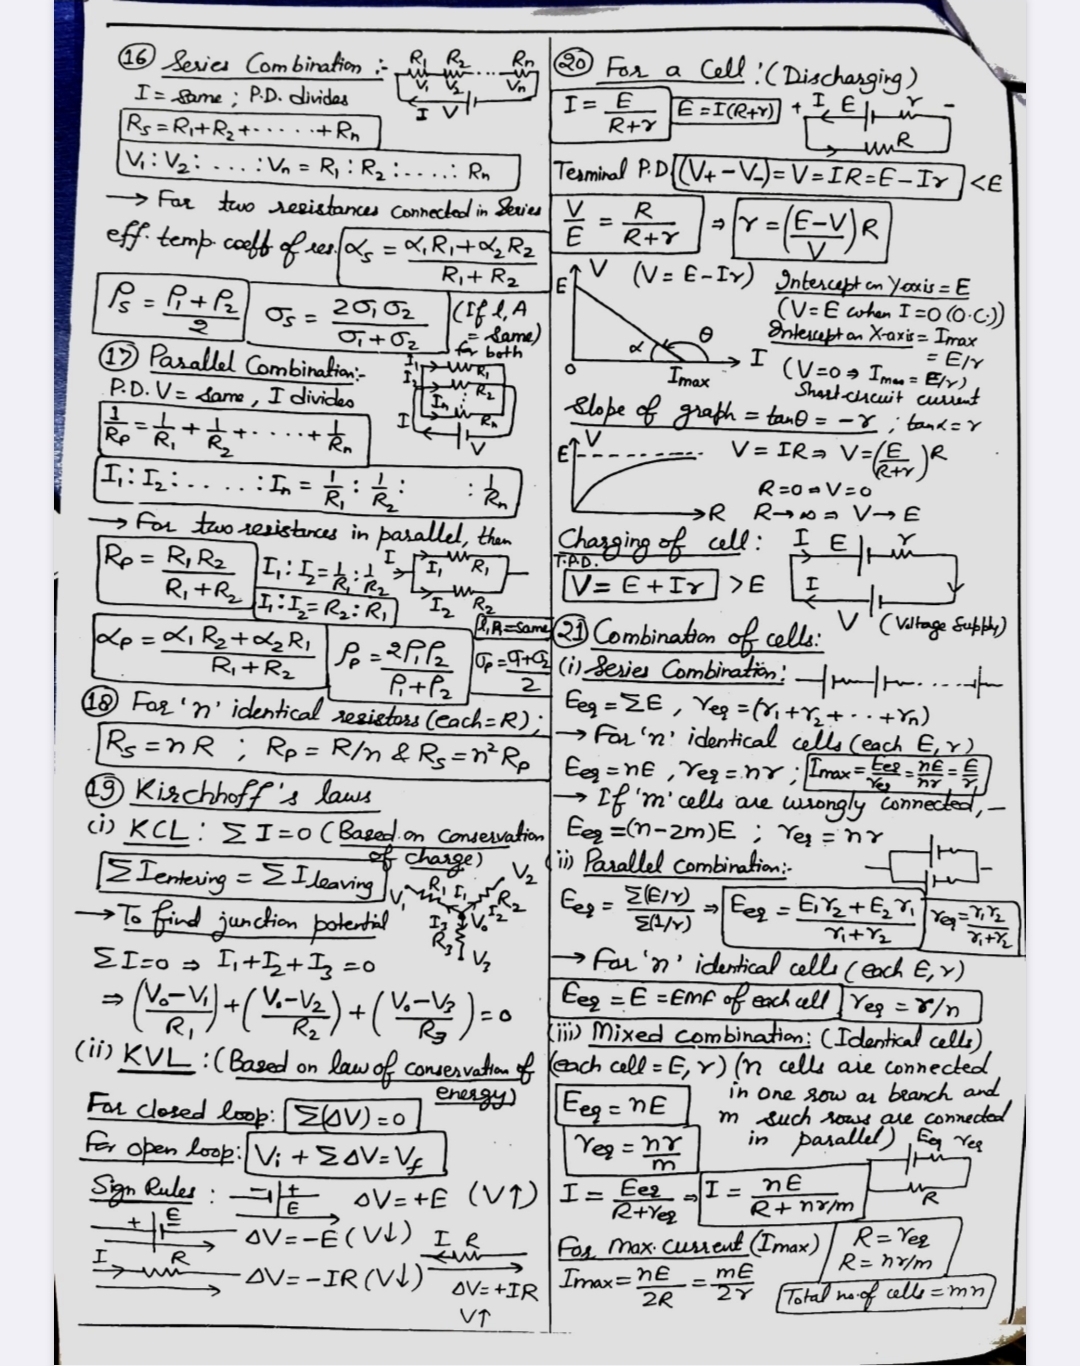 (16) Series Combination :-
R₁ R₂ Rn
V₁ V₂ Vn
I V
I = Same ; P.D. divides
Rs = R₁+R₂+......+Rn
V₁ : V₂ : .... : Vn = R₁ : R₂ : ..... : Rn
→ For two resistances connected in Series
eff. temp. coeff of res. αs = (α₁R₁+α₂R₂)/(R₁+R₂)
ρs = (ρ₁+ρ₂)/2
σs = 2σ₁σ₂/(σ₁+σ₂)
(If l, A = Same) for both
(17) Parallel Combination:-
P.D. V = Same, I divides
I₁ R₁
I₂ R₂
In Rn
I V
1/Rp = 1/R₁ + 1/R₂ + ..... + 1/Rn
I₁ : I₂ : ...... : In = 1/R₁ : 1/R₂ : : 1/Rn
→ For two resistances in parallel, then
Rp = R₁R₂/(R₁+R₂)
I₁ : I₂ = 1/R₁ : 1/R₂
I₁ : I₂ = R₂ : R₁
I I₁ R₁
I₂ R₂
αp = (α₁R₂+α₂R₁)/(R₁+R₂)
ρp = 2ρ₁ρ₂/(ρ₁+ρ₂)
σp = (σ₁+σ₂)/2
(18) For 'n' identical resistors (each = R) ;
Rs = nR ; Rp = R/n & Rs = n²Rp
(19) Kirchhoff's laws
(i) KCL : ΣI = 0 (Based on conservation of charge)
ΣIentering = ΣIleaving
V₁ R₁ I₁ V₂ R₂ I₂ I₃ V₀ R₃ V₃
→ To find junction potential
ΣI=0 ⇒ I₁+I₂+I₃ = 0
⇒ ((V₀-V₁)/R₁) + ((V₀-V₂)/R₂) + ((V₀-V₃)/R₃) = 0
(ii) KVL : (Based on law of conservation of energy)
For closed loop: Σ(ΔV) = 0
For open loop: Vi + ΣΔV = Vf
Sign Rules : + E ΔV = +E (V↑)
+ E ΔV = -E (V↓)
I R ΔV = -IR (V↓)
I R ΔV = +IR
V↑
(20) For a Cell : (Discharging)
I = E/(R+r)
E = I(R+r)
+ I E r -
R
Terminal P.D. (V₊-V₋) = V = IR = E-Ir < E
V/E = R/(R+r) ⇒ r = ((E-V)/V)R
V (V = E-Ir)
E α θ I
O Imax
Intercept on Yaxis = E
(V=E when I=0 (O.C.))
Intercept on X-axis = Imax
= E/r
(V=0 ⇒ Imax = E/r)
Short-circuit current
Slope of graph = tanθ = -r ; tanα = r
E V
R
V = IR ⇒ V = (E/(R+r))R
R=0 ⇒ V=0
R→∞ ⇒ V→E
Charging of cell :
T.P.D.
V = E+Ir > E
I E r
I
V (Voltage Supply)
(21) Combination of cells:
(i) Series Combination:
Eeq = ΣE , req = (r₁+r₂+...+rn)
→ For 'n' identical cells (each E, r)
Eeq = nE , req = nr ; Imax = Eeq/req = nE/nr = E/r
→ If 'm' cells are wrongly connected, -
Eeq = (n-2m)E ; req = nr
(ii) Parallel Combination:-
Eeq = Σ(E/r)/Σ(1/r) ⇒ Eeq = (E₁r₂+E₂r₁)/(r₁+r₂)
req = r₁r₂/(r₁+r₂)
→ For 'n' identical cells (each E, r)
Eeq = E = EMF of each cell
req = r/n
(iii) Mixed Combination: (Identical cells)
(each cell = E, r) (n cells are connected
in one row or branch and
m such rows are connected
in parallel)
Eeq = nE
req = nr/m
Eq req
R
I = Eeq/(R+req) ⇒ I = nE/(R+nr/m)
For max. current (Imax)
R = req
R = nr/m
Imax = nE/2R = mE/2r
Total no. of cells = mn